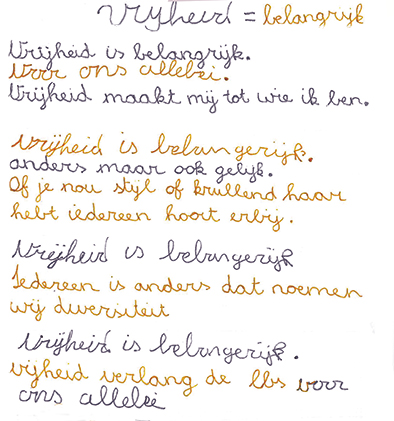 Vrijheid = belangrijk
Vrijheid is belangrijk.
Voor ons allebei.
Vrijheid maakt mij tot wie ik ben.
Vrijheid is belangerijk.
anders maar ook gelijk.
Of je nou stijl of krullend haar
hebt iedereen hoort erbij.
Vrijheid is belangerijk
Iedereen is anders dat noemen
wij diversiteit
Vrijheid is belangerijk.
vijheid verlang de voor
ons allebei